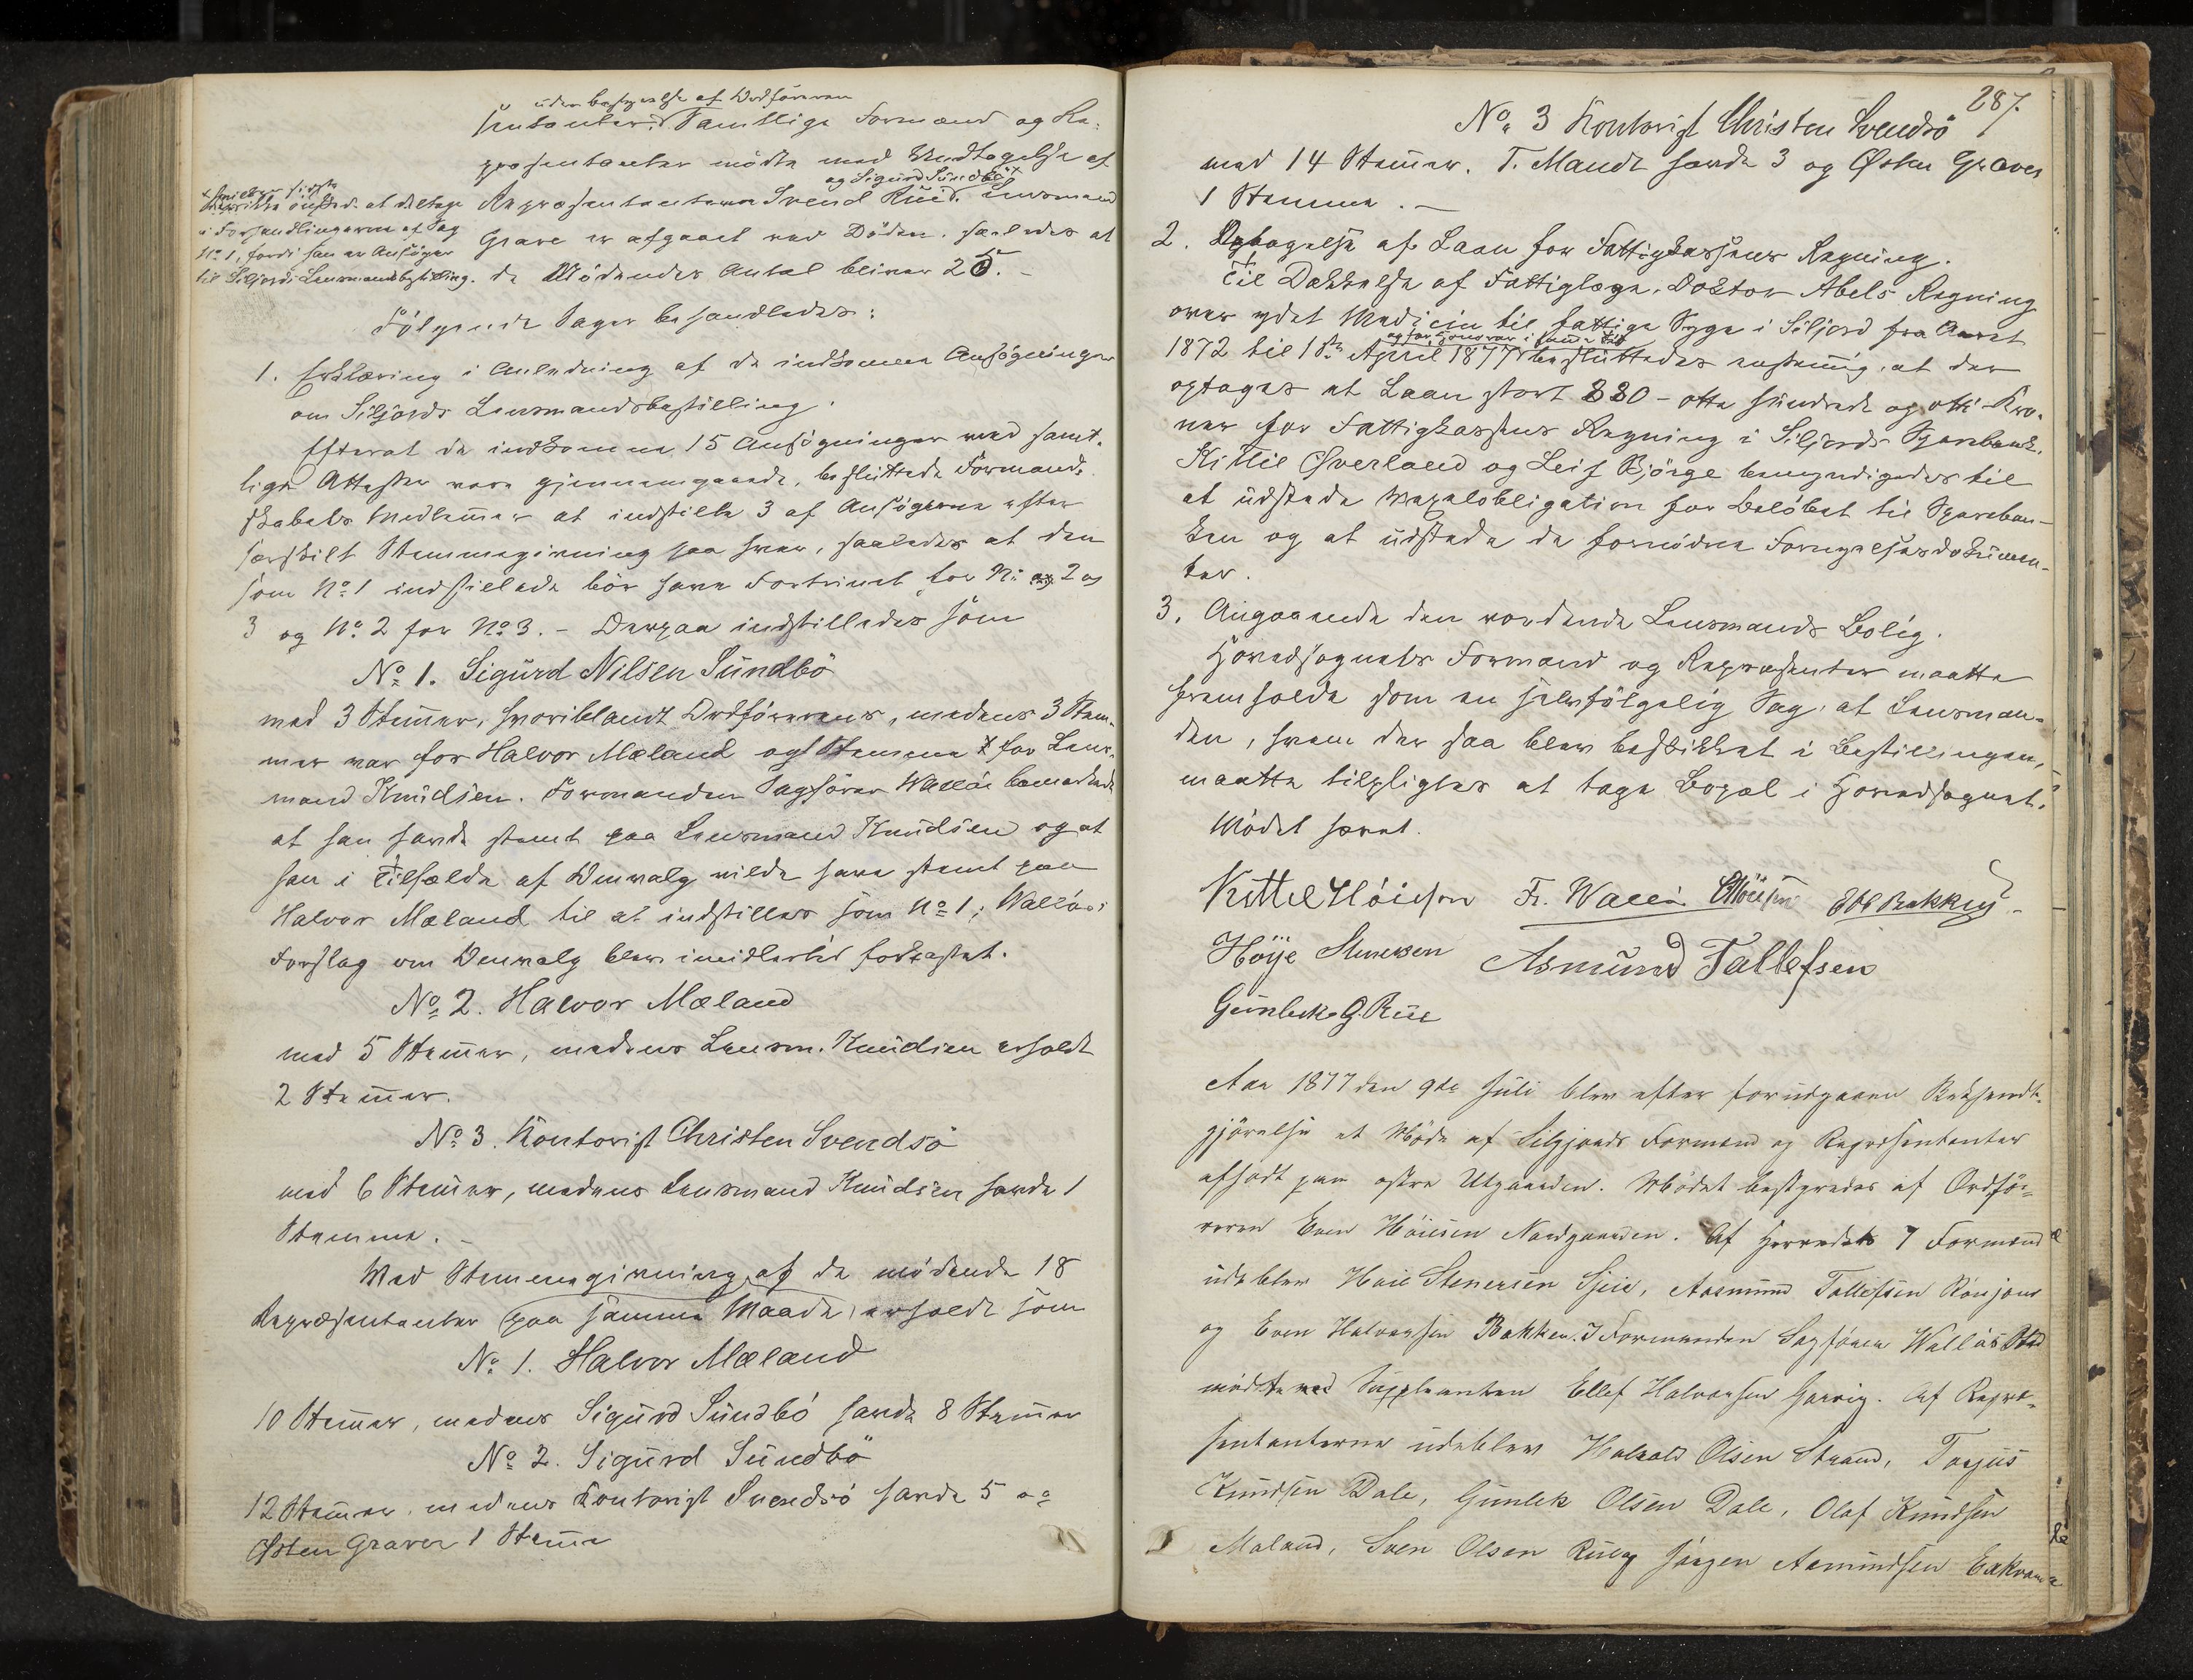 under bestyrelse af Ordføreren
sentanter. Samtlige Formænd og Re-
præsentanter mødte med Undtagelse af
og Sigurd Sundbö x
Repræsentanterne Svend Rui. Lensmand
Grave er afgaaet ved Döden. saaledes at
de Mödendes Antal bliver 25. -
x hvilken sidste
ikke önskede at deltage
i Forhandlingerne af Sag
No 1, fordi han er Ansöger
til Siljords Lensmandsbestilling.
Fölgende Sager behandledes:
1. Erklæring i Anledning af de indkomne Ansögninger
om Siljords Lensmandsbestilling.
Efterat de indkomne 15 Ansögninger med samt-
lige Attester vare gjennemgaaede, besluttede Formand-
skabets Medlemer at indstille 3 af Ansögerne efter
særskilt Stemmegivning paa hver, saaledes at den
som No 1 indstillede bör have Fortrinet for No 2 og
3 og No 2 for No 3. - Derpaa indstilledes som
No 1. Sigurd Nilsen Sundbö
med 3 Stemer, hvoriblandt Ordförerens, medens 3 Stem-
mer var for Halvor Mæland og 1 Stemme for Lens-
mand Knudsen. Formanden Sagförer Walløe bemærkede
at han havde stemt paa Lensmand Knudsen og at
han i Tilfælde af Omvalg vilde have stemt paa
Halvor Mæland til at indstilles som No 1; Walløes
Forslag om Omvalg blev imidlertid forkastet.
No 2. Halvor Mæland
med 5 Stemer, medens Lensm. Knudsen erholdt
2 Stemer.
No 3. Kontorist Christen Svendsö
med 6 Stemer, medens Lensmand Knudsen havde 1
Stemme. -
Ved Stemmegivning af de mödende 18
Repræsentanter (paa samme Maade) erholdt som
No 1. Halvor Mæland
10 Stemer, medens Sigurd Sundbö havde 8 Stemer
No 2. Sigurd Sundbö
12 Stemer, medens Kontorist Svendsö havde 5 og
Østen Graver 1 Steme
287.
No 3 Kontorist Christen Svendsö
med 14 Stemer. T. Mandt havde 3 og Østen Graver
1 Stemme. -
2. Optagelse af Laan for Fattigkassens Regning.
Til Dækkelse af Fattiglæge, Doktor Abels Regning
over ydet Medicin til fattige Syge i Siljord fra Aaret
og for Honorar i samme Tid
1872 til 1ste April 1877 besluttedes enstemig, at der
optages et Laan stort 880 - otte hundrede og otti - Kro-
ner for Fattigkassens Regning i Siljords Sparebank.
Kittil Øverland og Leif Björge bemyndigedes til
at udstede Vexelobligation for Belöbet til Spareban-
ken og at udstede de fornödne Fornyelsesdokumen-
ter.
3. Angaaende den vordende Lensmands Bolig.
Hovedsognets Formænd og Repræsenter maatte
fremholde som en selvfölgelig Sag, at Lensman-
den, hvem der saa blev beskikket i Bestillingen,
maatte tilpligtes at tage Bopæl i Hovedsognet.
Mödet hævet.
Kittel Höidsen Fr. Walløe EHöiesen EH Bakken
Höye Stenersen Asmund Tallefsen
Gunleik G. Rue
Aar 1877 den 9de Juli blev efter forudgaaen Bekjendt-
gjörelse et Möde af Silgjords Formænd og Repræsentanter
afholdt paa östre Utgaarden. Mödet bestyredes af Ordfö-
reren Even Höiesen Nordgaarden. Af Herredets 7 Formænd
udeblev Höie Stenersen Speie, Aasmund Tallefsen Rönjom
og Even Halvorsen Bakken. I Formanden Sagförer Walløes Sted
mödte ved Suppleanten Ellef Halvorsen Garvig. Af Repræ-
sentanterne udeblev Halvald Olsen Strand, Torjus
Knudsen Dale, Gunleik Olsen Dale, Olaf Knudsen
Mæland, Sven Olsen Rue og Jörgen Asmundsen Eikvam